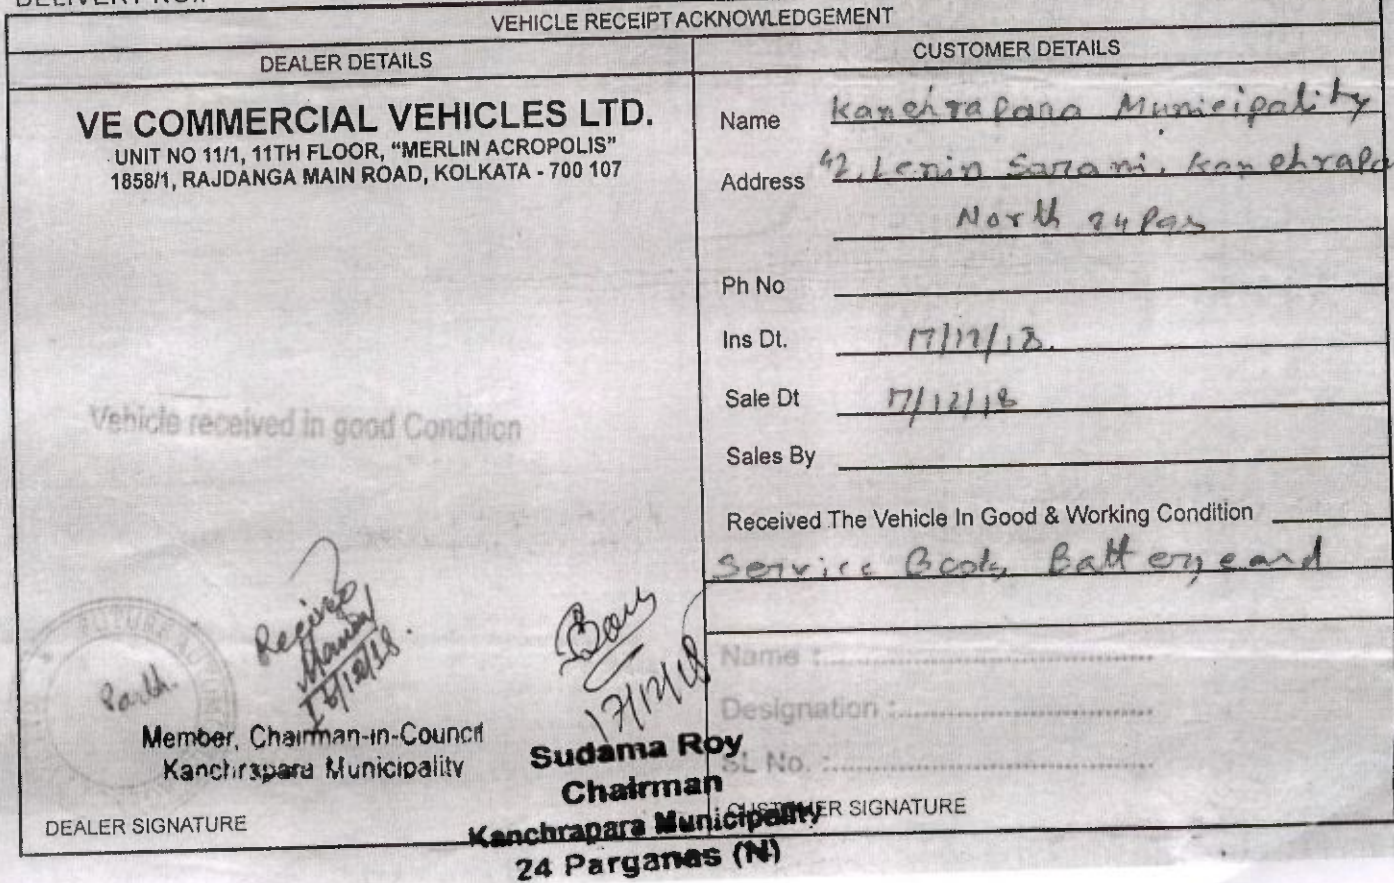 DELIVERY NO.:
VEHICLE RECEIPT ACKNOWLEDGEMENT
DEALER DETAILS
VE COMMERCIAL VEHICLES LTD.
UNIT NO 11/1, 11TH FLOOR, "MERLIN ACROPOLIS"
1858/1, RAJDANGA MAIN ROAD, KOLKATA - 700 107
Vehicle received in good Condition
Received
17/12/18
Member, Chairman-in-Council
Kanchrapara Municipality
DEALER SIGNATURE
17/12/18
Sudama Roy
Chairman
Kanchrapara Municipality
24 Parganas (N)
CUSTOMER DETAILS
Name Kanchrapara Municipality
Address 42, Lenin Sarani, Kanchrapa
North 24 Pgs
Ph No
Ins Dt. 17/12/18.
Sale Dt 17/12/18
Sales By
Received The Vehicle In Good & Working Condition
Service Book, Battery card
Name :
Designation :
SL No. :
CUSTOMER SIGNATURE